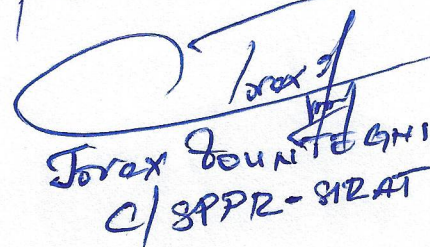 Torex
Torex SOUNTEGNI
C/SPPR-SIRAT